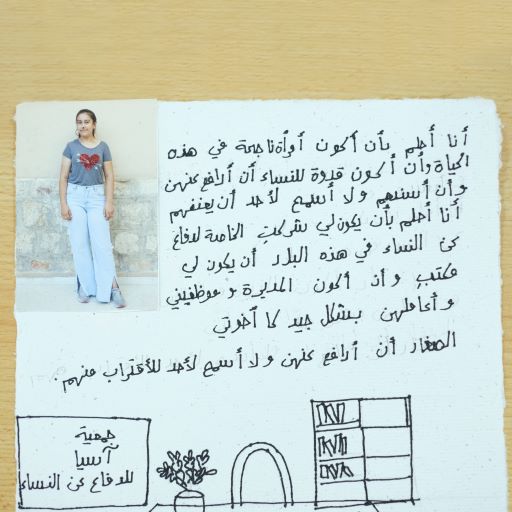 أنا أحلم بأن أكون أمرأة ناجحة في هذه
الحياة وأن أكون قدوة للنساء أن أرافع عنهن
وأن أسندهم ولا أسمح لأحد أن يعنفهم
أنا أحلم بأن يكون لي شركتي الخاصة لدفاع
عن النساء في هذه البلاد أن يكون لي
مكتب وأن أكون المديرة و موظفيني
وأعاملهن بشكل جيد كما أخوتي
الصغار أن أرافع عنهن ولا أسمح لأحد للأقتراب منهم.
جمعية
آسيا
للدفاع عن النساء